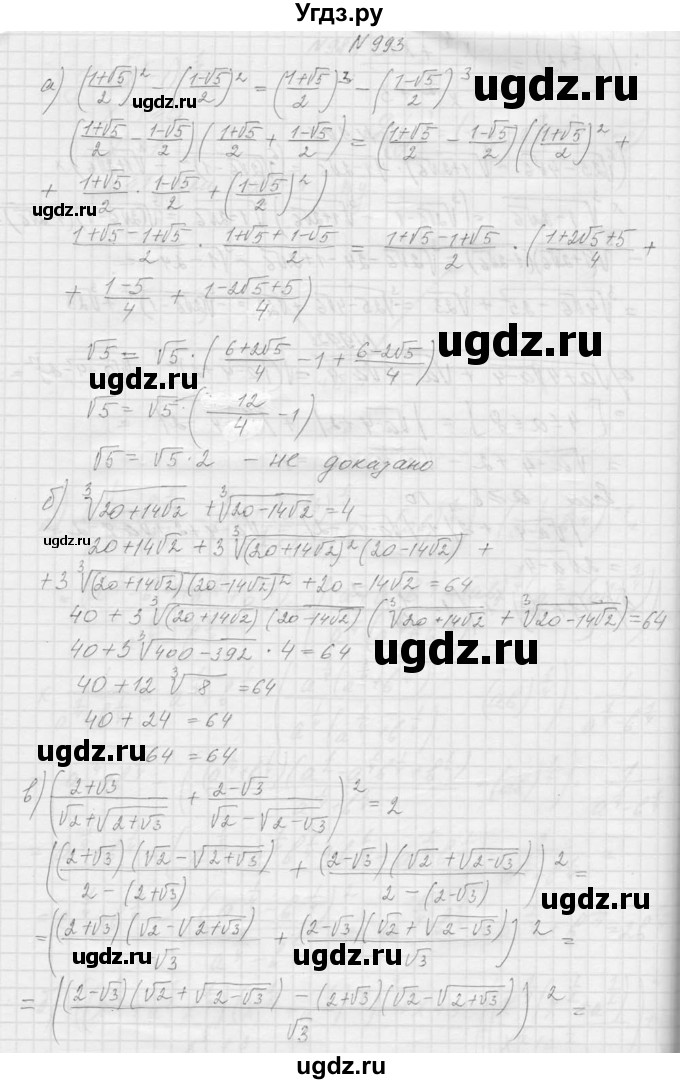 Угдз.ру
№ 993
а) ((1+√5)/2)² - ((1-√5)/2)² = ((1+√5)/2)³ - ((1-√5)/2)³
ugdz.ru
((1+√5)/2 - (1-√5)/2)((1+√5)/2 + (1-√5)/2) = ((1+√5)/2 - (1-√5)/2)(((1+√5)/2)² +
+ (1+√5)/2 · (1-√5)/2 + ((1-√5)/2)²)
ugdz.ru
(1+√5-1+√5)/2 · (1+√5+1-√5)/2 = (1+√5-1+√5)/2 · ((1+2√5+5)/4 +
+ (1-5)/4 + (1-2√5+5)/4)
ugdz.ru
√5 = √5 · ((6+2√5)/4 - 1 + (6-2√5)/4)
ugdz.ru
√5 = √5 · (12/4 - 1)
√5 = √5 · 2 - не доказано
б) ∛(20+14√2) + ∛(20-14√2) = 4
ugdz.ru
20+14√2 + 3∛((20+14√2)²(20-14√2)) +
+ 3∛((20+14√2)(20-14√2)²) + 20 - 14√2 = 64
40 + 3∛((20+14√2)(20-14√2)) (∛(20+14√2) + ∛(20-14√2)) = 64
40 + 3∛(400-392) · 4 = 64
ugdz.ru
40 + 12∛8 = 64
40 + 24 = 64
ugdz.ru
64 = 64
в) ((2+√3)/(√2+√(2+√3)) + (2-√3)/(√2-√(2-√3)))² = 2
ugdz.ru
(((2+√3)(√2-√(2+√3)))/(2-(2+√3)) + ((2-√3)(√2+√(2-√3)))/(2-(2-√3)))² =
ugdz.ru
= (((2+√3)(√2-√(2+√3)))/√3 + ((2-√3)(√2+√(2-√3)))/√3)² =
ugdz.ru
ugdz.ru
= (((2-√3)(√2+√(2-√3)) - (2+√3)(√2-√(2+√3)))/√3)² =
ugdz.ru
ugdz.ru